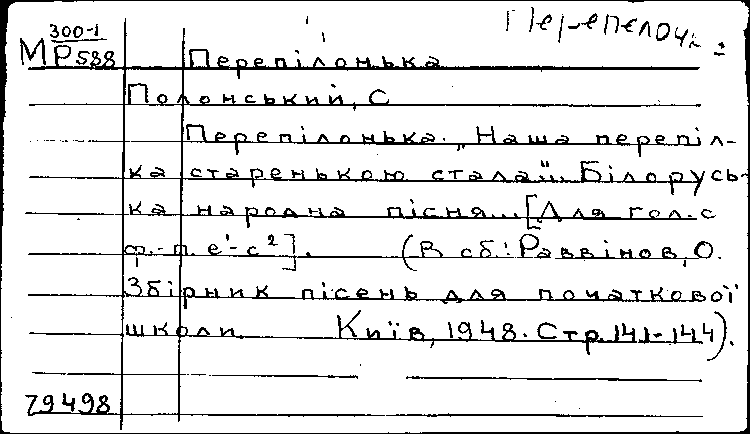 300-1
МР588
Перепілонька
Полонський, С
Перепілонька. „Наша перепіл-
ка старенькою стала". Білорусь-
ка народна пісня... [Для гол. с
ф.-п. е'-с²]. (В сб.: Раввінов, О.
Збірник пісень для початкової
школи. Київ, 1948. Стр. 141-144).
79498